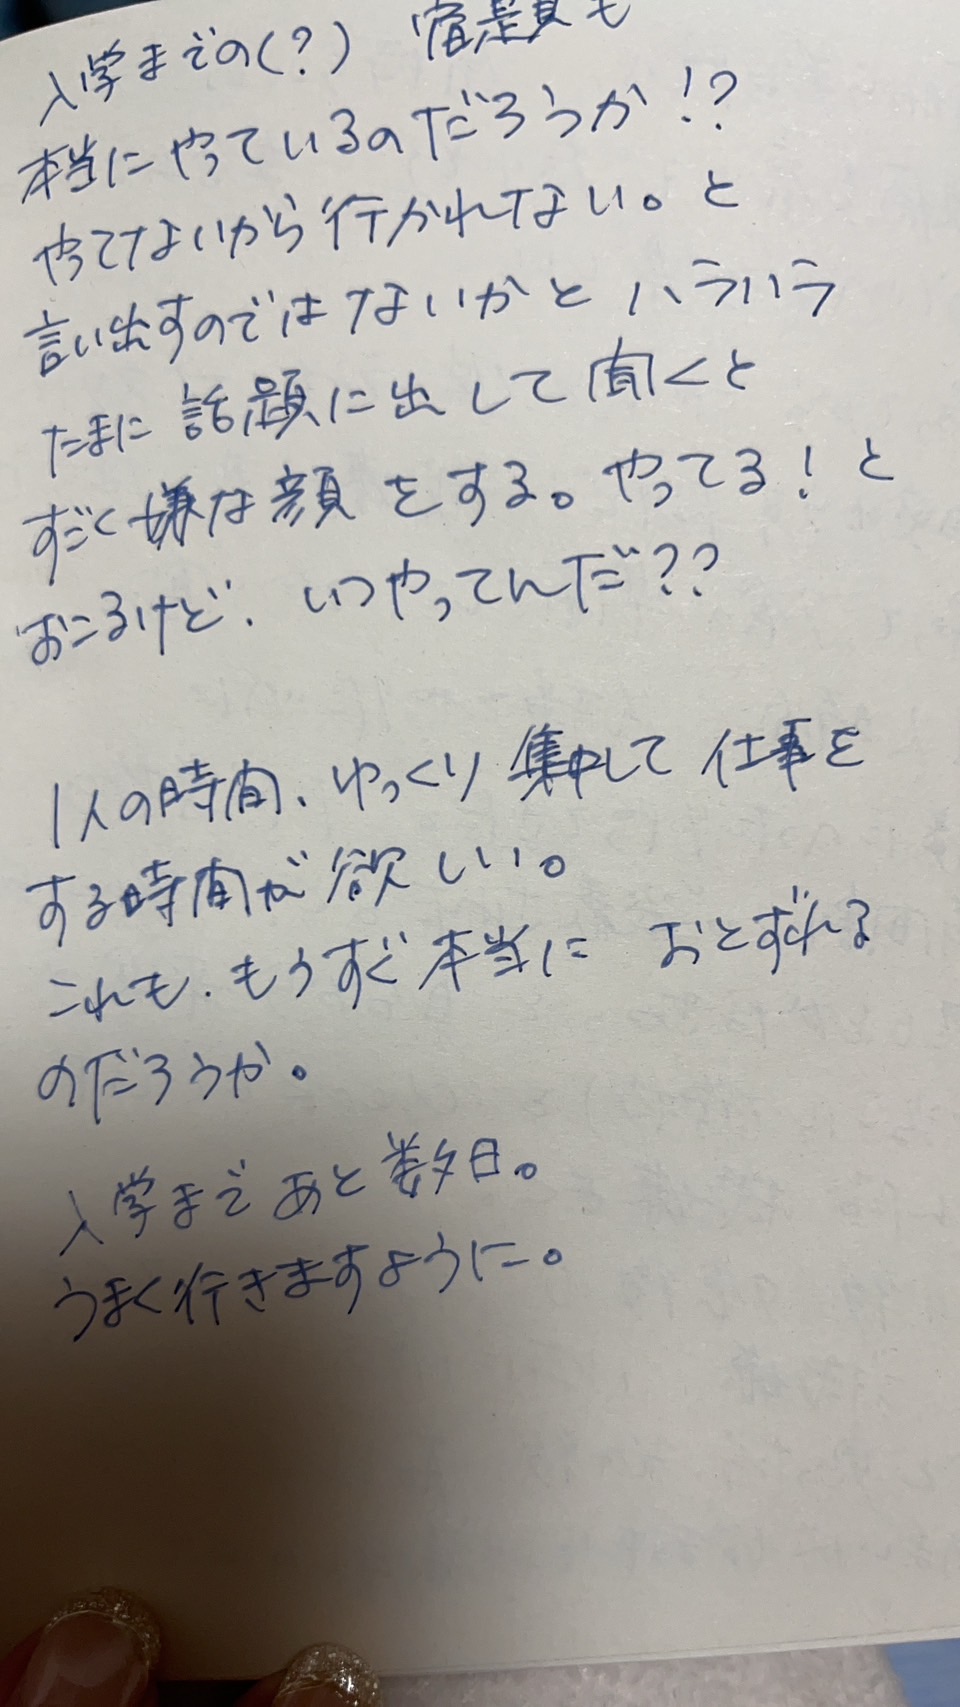 入学までの(?) 宿題も
本当にやっているのだろうか!?
やってないから行かれない。と
言い出すのではないかと ハラハラ
たまに 話題に出して聞くと
すごく嫌な顔をする。やってる!と
おこるけど、いつやってんだ??
1人の時間、ゆっくり集中して仕事を
する時間が欲しい。
これも、もうすぐ本当に おとずれる
のだろうか。
入学まであと数日。
うまく行きますように。